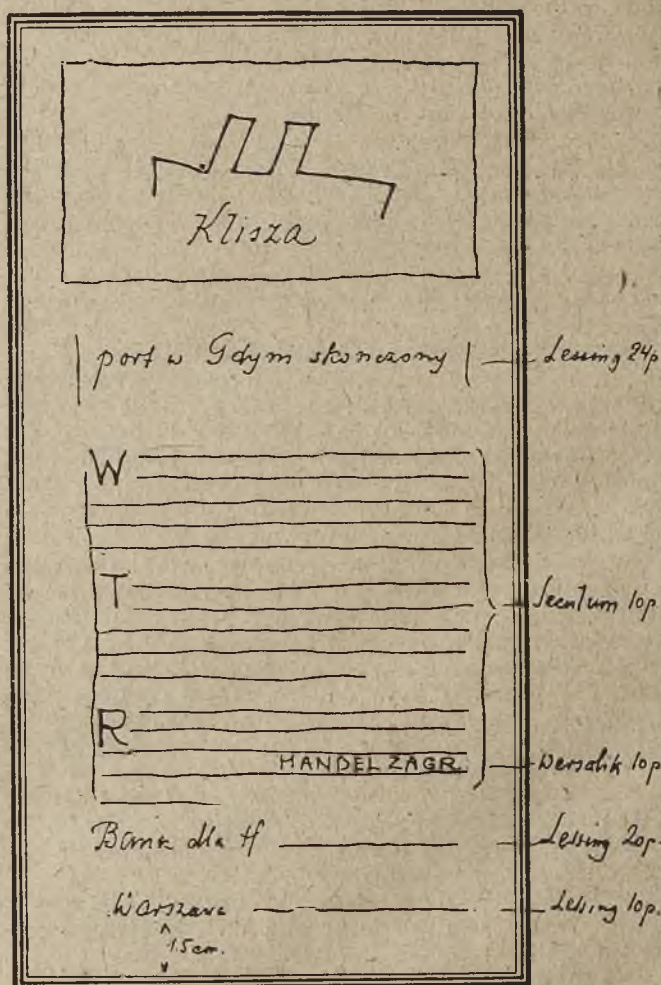 Klisza
port w Gdym skończony Lessing 24p
W
T
Secutum 10p.
R
HANDEL ZAGR. Wersalik 10p
Bank dla H Lessing 20p.
Warszawa Lessing 10p.
1.5 cm.